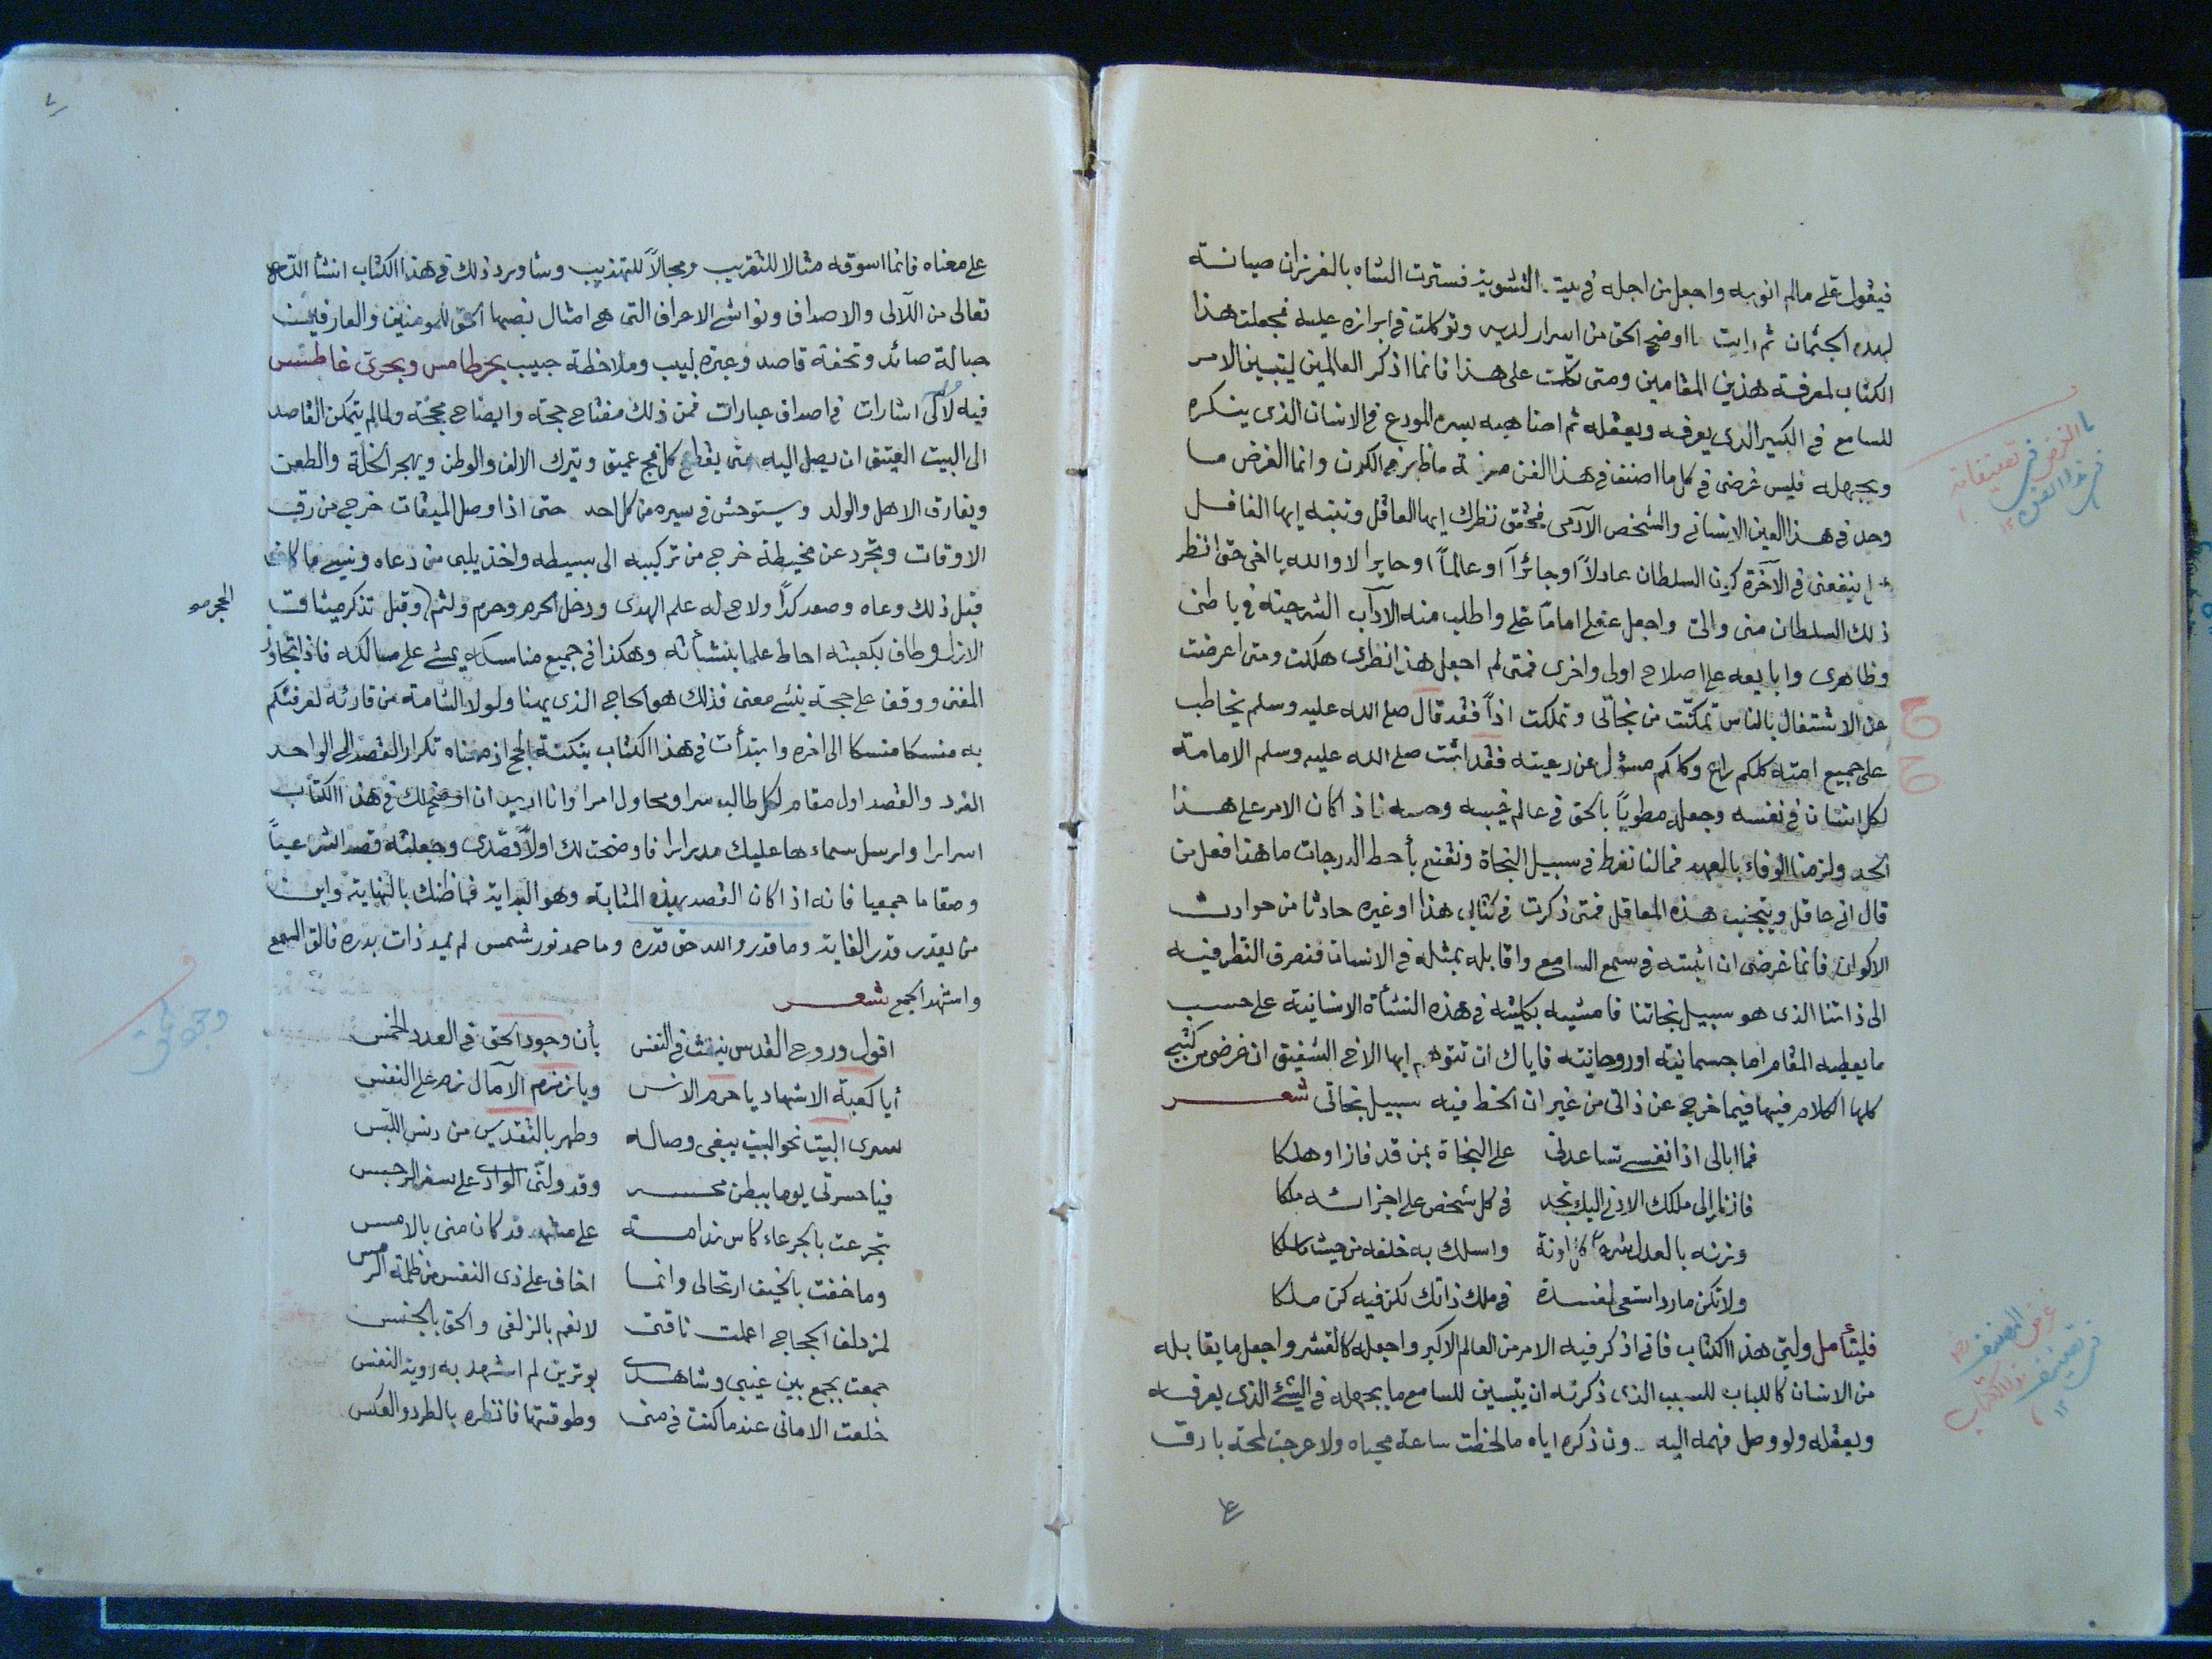 فيقول على مالم انوبه واجعل من اجله في بيت التشويه فسترت الشاه بالفرزان صيانة
لهذه الجثمان ثم رايت ما اوضح الحق من اسرار لديه وتوكلت في ابرازه عليه فجعلت هذا
الكتاب لمعرفة هذين المقامين ومتى تكلمت على هذا فانما اذكر العالمين ليتبين الامر
للسامع في الكبير الذي يعرفه ويعقله ثم اضاهيه بسره المودع في الانسان الذي ينكره
ويجهله فليس غرضى في كل ما اصنف في هذا الفن معرفة ماظهر في الكون وانما الغرض ما
وجد في هذا العين الانسانى والشخص الآدمى فحقق نظرك ايها العاقل وتنبه ايها الغافل
هل ينفعنى في الآخرة كون السلطان عادلاً او جائراً او عالماً او حايرا لا والله يا اخى حتى انظر
ذلك السلطان منى والىّ واجعل عقلى اماماً علىّ واطلب منه الآداب الشرعية في باطنى
وظاهرى وابايعه على اصلاح اولى واخرى فمتى لم اجعل هذا نظرى هلكت ومتى اعرضت
عن الاشتغال بالناس تمكنت من نجاتى وتملكت اذاً فقد قال صلى الله عليه وسلم يخاطب
على جميع امته كلكم راع وكلكم مسؤل عن رعيته فقد اثبت صلى الله عليه وسلم الامامة
لكل انسان في نفسه وجعله مطوياً بالحق في عالم غيبه وحسه فاذا كان الامر على هذا
الحد ولزمنا الوفاء بالعهد فمالنا نفرط في سبيل النجاة ونقنع بأحط الدرجات ما هذا فعل من
قال انى عاقل ويتجنب هذه المعاقل فمتى ذكرت في كتابى هذا او غيره حادثا من حوادث
الاكوان فانما غرضى ان اثبته في سمع السامع واقابله بمثله في الانسان فنصرف النظر فيه
الى ذاتنا الذى هو سبيل نجاتنا فامشيه بكليته في هذه النشأة الانسانية على حسب
ما يعطيه المقام اما جسمانية او روحانية فاياك ان تتوهم ايها الاخ الشفيق ان غرضى من كتبى
كلها الكلام فيها فيما خرج عن ذاتى من غير ان الحظ فيه سبيل نجاتى شعر
فما ابالى اذا نفسى تساعدنى على النجاة بمن قد فازا وهلكا
فانظر الى ملكك الادنى اليك تجد في كل شخص على اجزائه ملكا
وزنه بالعدل شرعا كل اونة واسلك به خلفه من حيثما سلكا
ولا تكن ماردا تسعى لمفسدة في ملك ذاتك لكن فيه كن ملكا
فليتأمل وليي هذا الكتاب فانى اذكر فيه الامر من العالم الاكبر واجعله كالقشر واجعل ما يقابله
من الانسان كاللباب للسبب الذى ذكرته ان يتبين للسامع ما يجهله في الشئ الذى يعرفه
ويعقله ولو وصل فهمه اليه دون ذكره اياه مالحظت ساعة محياه ولا عرجت لمحة بارق
على معناه فانما اسوقه مثالا للتقريب ومجالاً للتهذيب وساورد ذلك في هذا الكتاب انشأ الله
تعالى من اللآلى والاصداف ونواشئ الاعراف التى هى امثال نصبها الحق للمومنين والعارفين
حبالة صائد وتحفة قاصد وعبرة لبيب وملاحظة حبيب بحر طامس وبحرى غاطس
فيه لآلى اشارات في اصداف عبارات فمن ذلك مفتاح حجة وايضاح محجة ولمالم يتمكن القاصد
الى البيت العتيق ان يصل اليه حتى يقطع كل فج عميق ويترك الالف والوطن ويهجر الخلة والطعن
ويفارق الاهل والولد ويستوحش في سيره من كل احد حتى اذا وصل الميقات خرج من رق
الاوقات وتجرد عن مخيطه خرج من تركيبه الى بسيطه واخذ يلبى من دعاه ونسى ما كان
قبل ذلك وعاه وصعد كداً ولاح له علم الهدى ودخل الحرم وحرم ولثم وقبل تذكر ميثاق
الحجر
الازل وطاف بكعبته احاط علما بنشأته وهكذا في جميع مناسكه يمشى على مسالكه فاذا تجاوز
المغنى ووقف على حجة بنئے معنى فذلك هو الحاج الذى يهنا ولولا الشامة من قارئه لعرفتكم
به منسكا منسكا الى اخره وابتدأت في هذا الكتاب بنكتة الحج اذ معناه تكرار القصد الى الواحد
الفرد والقصد اول مقام لكل طالب سرا ومحاول امرا وانا اريد ان اوضح لك في هذا الكتاب
اسرارا وارسل سماءها عليك مدرارا فاوضحت لك اولاً قصدى وجعلته قصدا شرعياً
ومقاما جمعيا فانه اذا كان القصد بهذه المثابة وهو البداية فما ظنك بالنهاية واين
من يقدر قدر الغاية وما قدروا الله حق قدره وما حمد نور شمس لم تمد ذات بدره فالق السمع
واشهد الجمع شعر
اقول وروح القدس ينفث في النفس بأن وجود الحق في العدد الخمس
أيا كعبة الاشهاد يا حرم الانس ويا زمزم الآمال زم على النفس
سرى البيت نحو البيت يبغى وصاله وطهر بالتقديس من دنس اللبس
فيا حسرتى يوما ببطن محسر وقد دلنى الوادى على سقر الرجس
تجرعت بالجرعاء كاس ندامة على مشهد قد كان منى بالامس
وما خفت بالخيف ارتحالى وانما اخاف على ذى النفس من ظلمة الرمس
لمزدلف الحجاج اعملت ناقتى لانعم بالزلفى والحق بالجنس
جمعت بجمع بين غيبى وشاهدى بوترين لم اشهد به رؤية النفس
خلعت الامانى عندما كنت في منى وطوقتها فانظره بالطرد والعكس